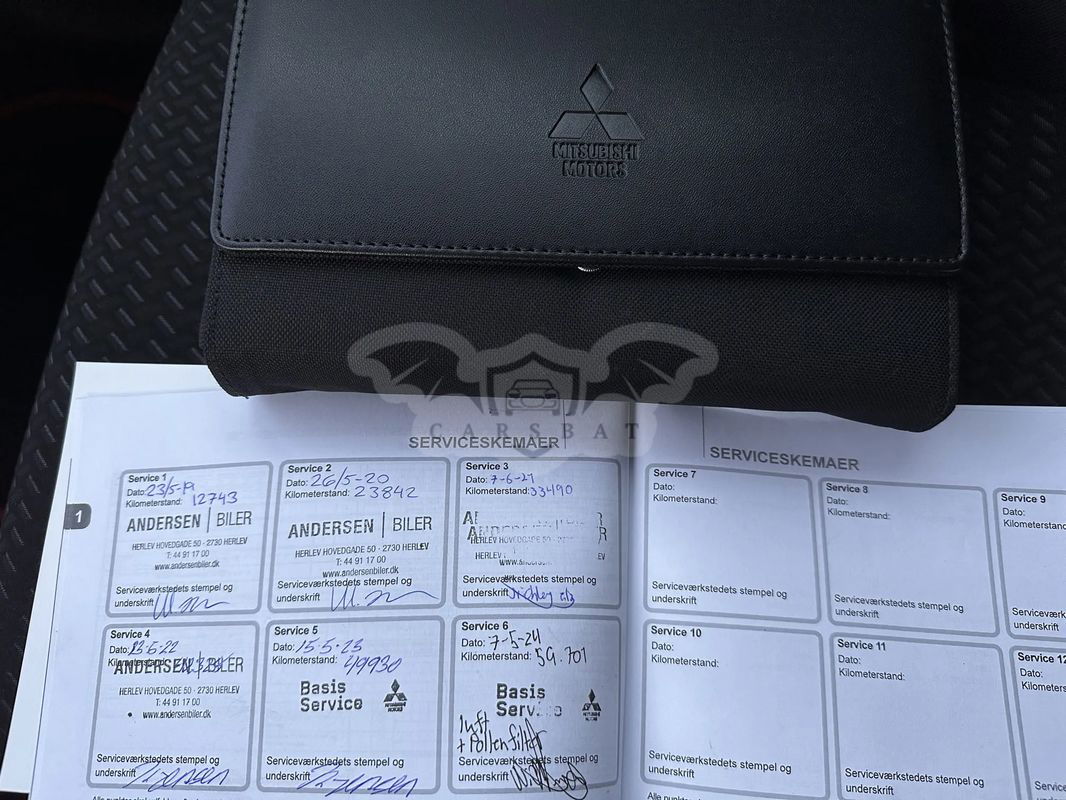 MITSUBISHI
MOTORS
CARSBAT
SERVICESKEMAER
1
Service 1
Dato: 23/5-19
Kilometerstand: 12743
ANDERSEN | BILER
HERLEV HOVEDGADE 50 - 2730 HERLEV
T: 44 91 17 00
www.andersenbiler.dk
Serviceværkstedets stempel og
underskrift
Service 2
Dato: 26/5-20
Kilometerstand: 23842
ANDERSEN | BILER
HERLEV HOVEDGADE 50 - 2730 HERLEV
T: 44 91 17 00
www.andersenbiler.dk
Serviceværkstedets stempel og
underskrift
Service 3
Dato: 7-6-21
Kilometerstand: 33490
Serviceværkstedets stempel og
underskrift
Service 4
Dato: 6-22
Kilometerstand:
ANDERSEN | BILER
HERLEV HOVEDGADE 50 - 2730 HERLEV
T: 44 91 17 00
www.andersenbiler.dk
Serviceværkstedets stempel og
underskrift
Service 5
Dato: 15-5-23
Kilometerstand: 49930
Basis
Service
Serviceværkstedets stempel og
underskrift
Service 6
Dato: 7-5-24
Kilometerstand: 59.701
Basis
Service
luft
+ Pollenfilter
Serviceværkstedets stempel og
underskrift
SERVICESKEMAER
Service 7
Dato:
Kilometerstand:
Serviceværkstedets stempel og
underskrift
Service 8
Dato:
Kilometerstand:
Serviceværkstedets stempel og
underskrift
Service 9
Dato:
Kilometerstand:
underskrift
Service 10
Dato:
Kilometerstand:
Serviceværkstedets stempel og
underskrift
Service 11
Dato:
Kilometerstand:
Serviceværkstedets stempel og
underskrift
Service 12
Dato: